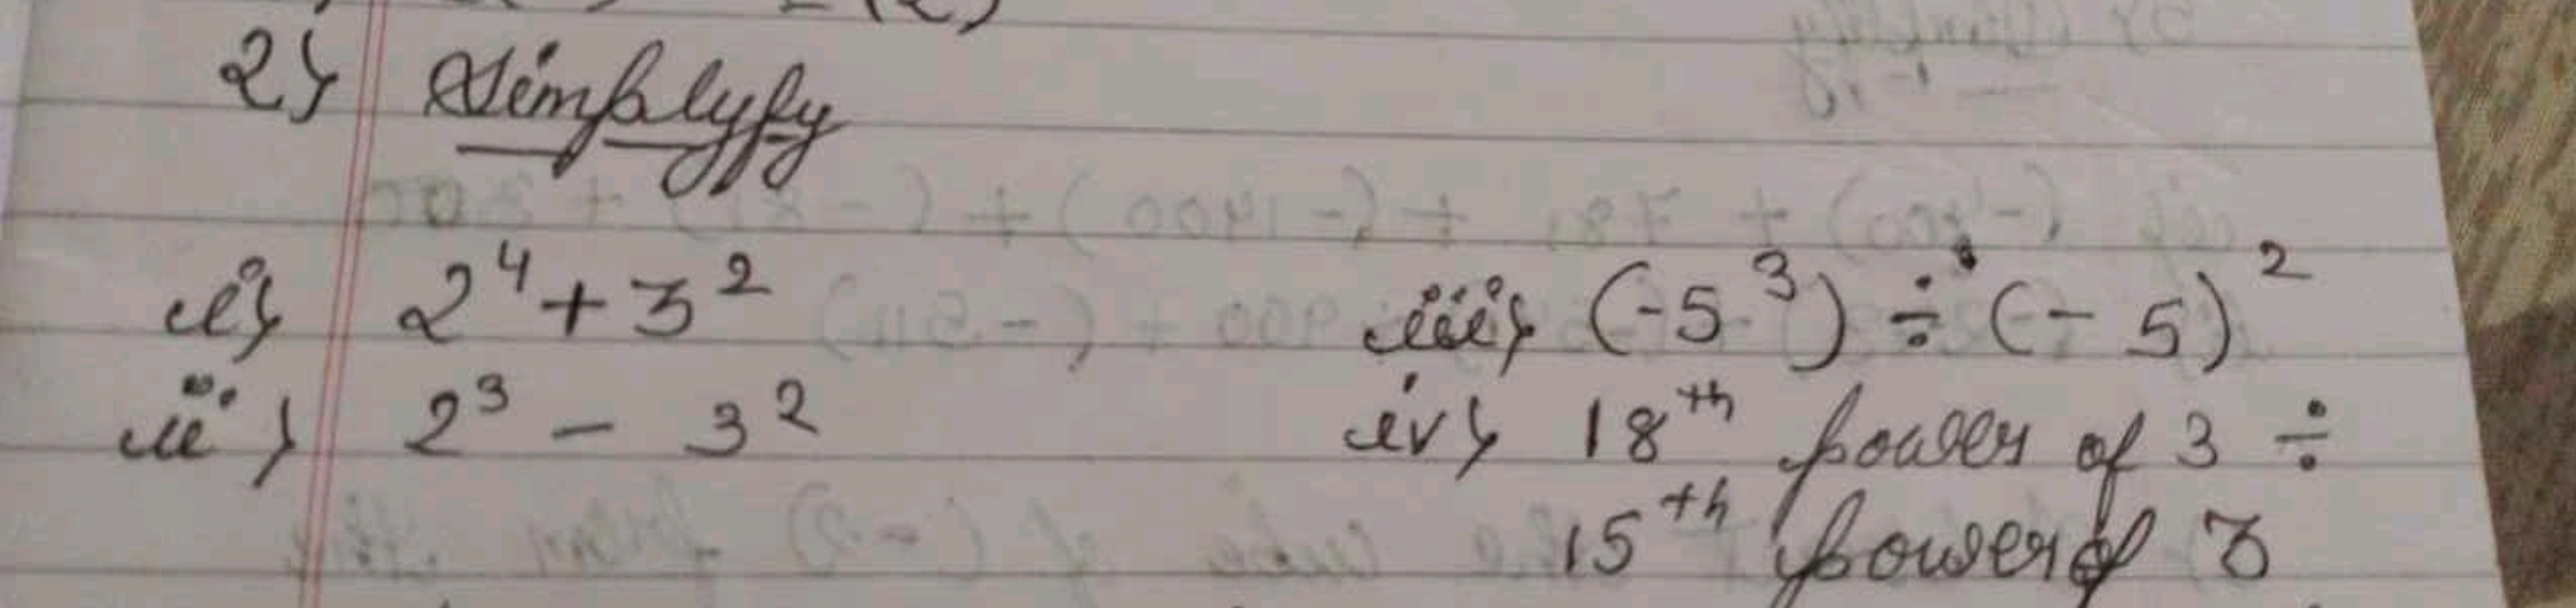 2) Simplyfy
i) 2⁴ + 3²
ii) 2³ - 3²
iii) (-5³) ÷ (-5)²
iv) 18th power of 3 ÷
15th power of 3